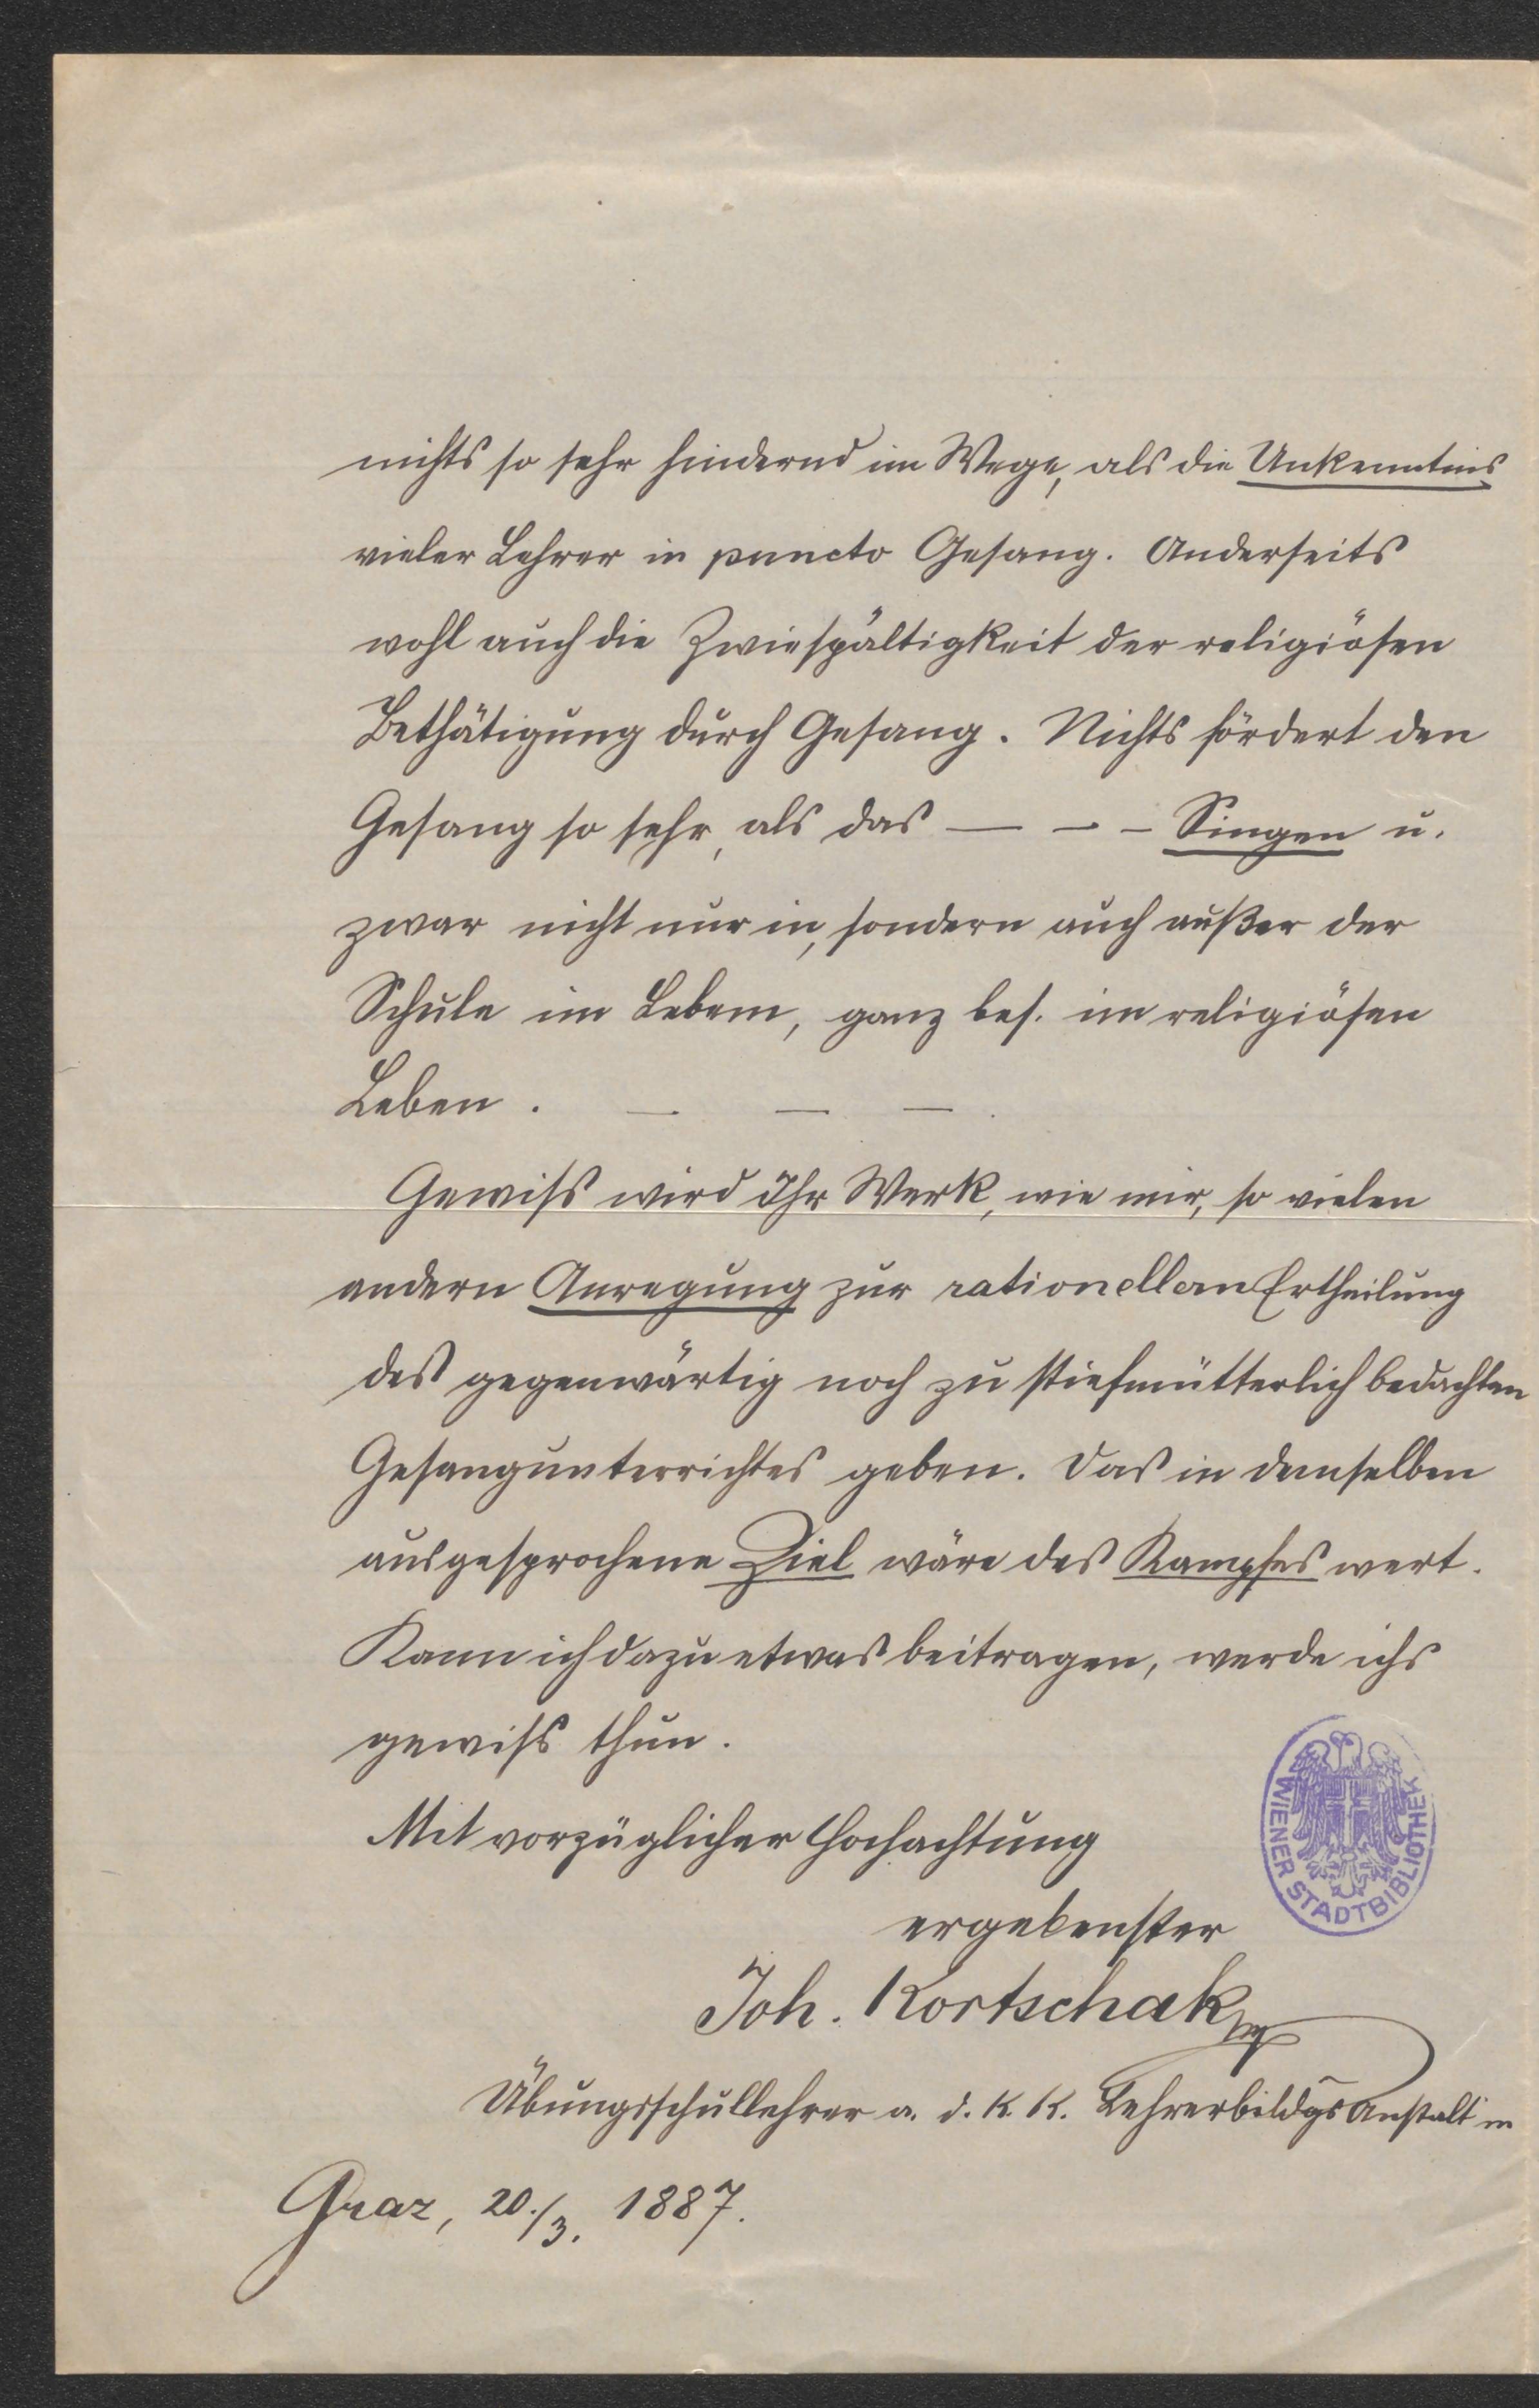 nichts so sehr hindernd im Wege, als die Unkenntnis
vieler Lehrer in puncto Gesang. Anderseits
wohl auch die Zwiespältigkeit der religiösen
Bethätigung durch Gesang. Nichts fördert den
Gesang so sehr, als das — – – Singen u.
zwar nicht nur in, sondern auch außer der
Schule im Leben, ganz bes. im religiösen
Leben. — — —.
Gewiss wird Ihr Werk, wie mir, so vielen
andern Anregung zur rationellen Ertheilung
des gegenwärtig noch zu stiefmütterlich bedachten
Gesangunterrichtes geben. Das in demselben
ausgesprochene Ziel wäre des Kampfes wert.
Kann ich dazu etwas beitragen, werde ichs
gewiss thun.
Mit vorzüglicher Hochachtung
ergebenster
Joh. Kortschak
Übungsschullehrer a. d. k. k. Lehrerbildgs Anstalt in
Graz, 20./3. 1887.
WIENER STADTBIBLIOTHEK